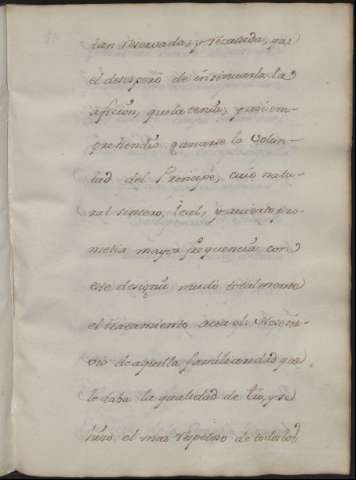 tan reservada, y recatada, que
el desesperò de insinuarla la
aficion, que la tenia, y assi em-
prehendiò ganarse la Volun-
tad del Principe, cuio natu-
ral sincero, leal, y abierto pro-
metia mayor frequencia con
este designio mudò totalmente
el tratamiento acia el: Reser-
vio de aquella familiaridad que
le daba la qualidad de tio, y se
hizo el mas respetoso de todos los